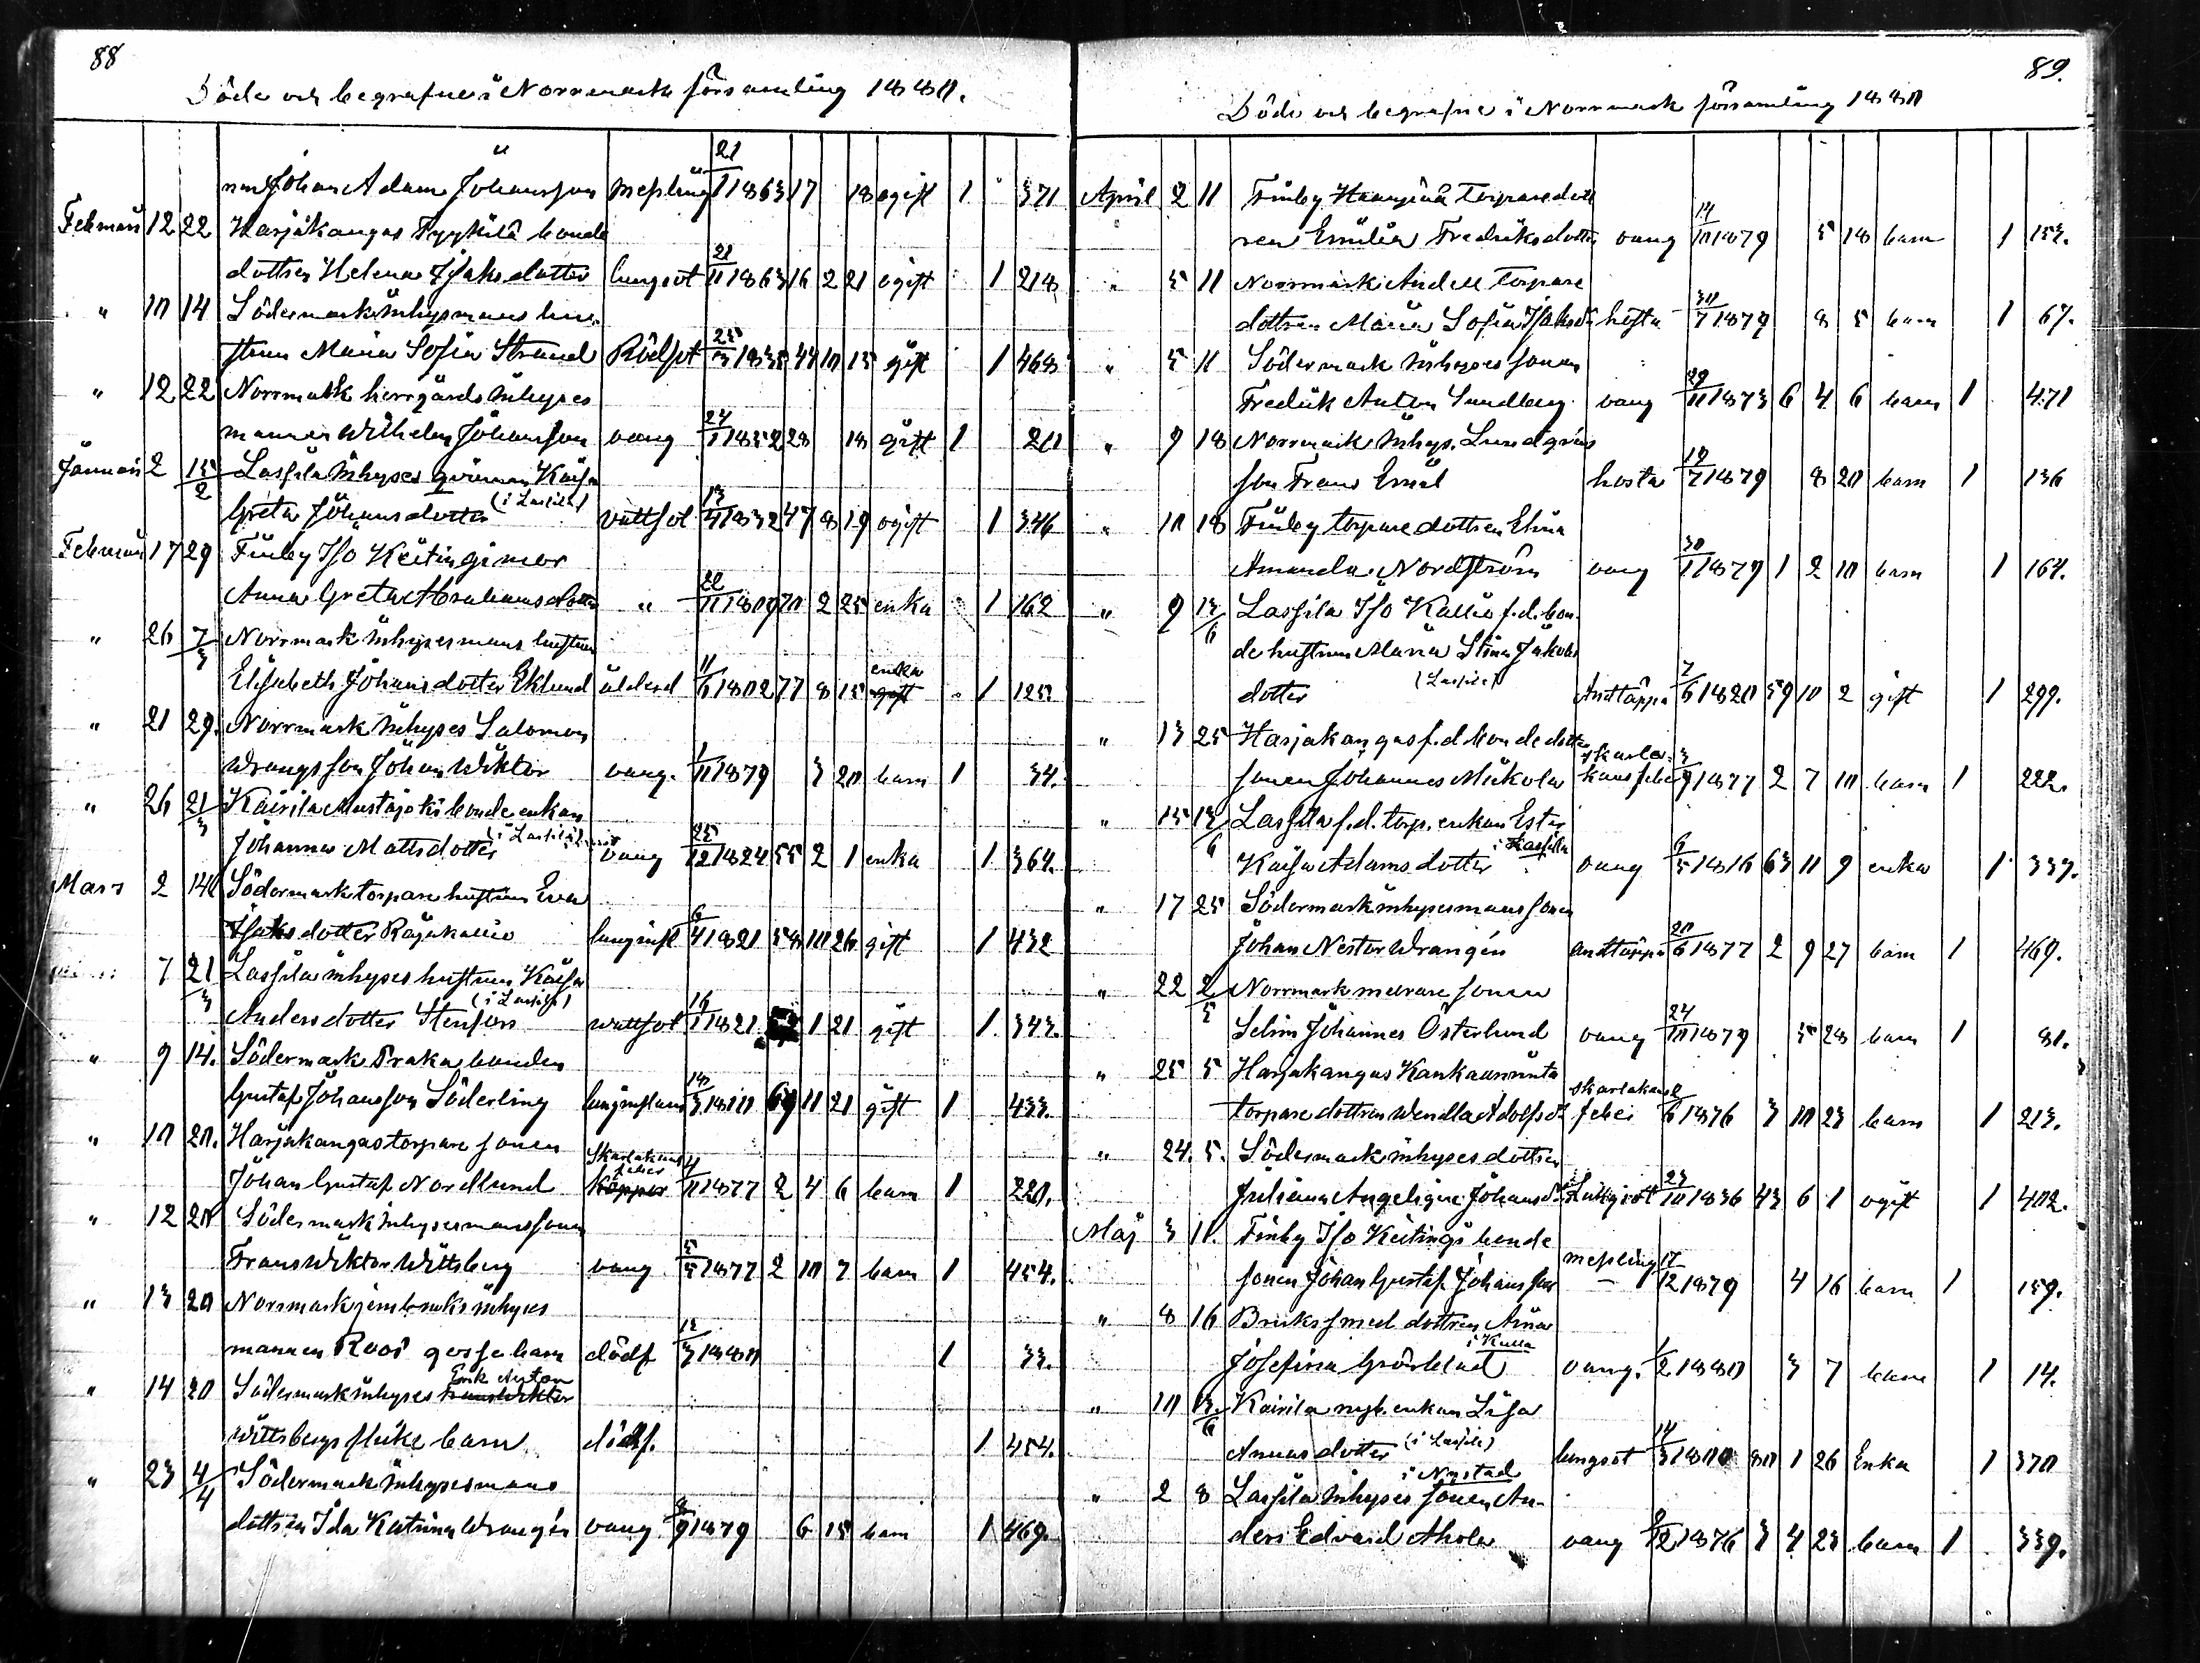 88
Döde och begrafne i Norrmark församling 1880.
nen Johan Adam Johansson Messling 21/1 1863 17 18 ogift 1 371
Februari 12 22 Harjakangas Pyykilä bonde
dottren Helena Isaks dotter lungsot 21/11 1863 16 2 21 ogift 1 218
" 10 14 Södermark inhysmans hu-
strun Maria Sofia Strand Rödsot 25/3 1835 44 10 15 gift 1 468
" 12 22 Norrmark herrgårds inhyses
mannen Wilhelm Johansson oang 24/1 1852 28 18 gift 1 20
Januari 2 15/2 Lassila inhyses qvinnan Kaisa
Greta Johansdotter (i Lassila) vattsot 13/4 1832 47 8 19 ogift 1 346
Februari 17 29 Finby Iso Keitingi mor
Anna Greta Abrahamsdotter " 22/11 1809 70 2 25 enka 1 162
" 26 7/3 Norrmark inhysesmans hustrun
Elisabeth Johansdotter Eklund ålderd 11/6 1802 77 8 15 enka gift 1 125
" 21 29. Norrmark inhyses Salomon
Wrangs son Johan Wiktor oang. 1/11 1879 3 20 barn 1 34.
" 26 21/3 Kairila Mustajoki bonde enkan
Johanna Mattsdotter (i Lassila) oang 25/12 1824 55 2 1 enka 1 364.
Mars 2 14 Södermark torpare hustrun Eva
Isaks dotter Rajakallio lunginfl 6/4 1821 58 10 26 gift 1 432
7 21/3 Lassila inhyses hustrun Kaisa
Anders dotter Stenfors (i Lassila) wattsot 16/1 1821 1 21 gift 1 343.
" 9 14. Södermark Praka bonden
Gustaf Johansson Söderling lunginflam 18/3 1810 69 11 21 gift 1 433.
" 10 20. Harjakangas torpare sonen
Johan Gustaf Nordlund Skarlakans feber koppor 4/11 1877 2 4 6 barn 1 220.
" 12 20 Södermark inhysesmans sonen
Frans Wiktor Wittsberg oang 5/5 1877 2 10 7 barn 1 454.
" 13 20 Norrmark jernbruks inhyses
mannen Roos gosse barn dödf 13/3 1880 1 33.
" 14 20 Södermark inhyses Erik Nestor Frans Wiktor
Wittsbergs flicke barn dödf. 1 454.
" 23 4/4 Södermark inhysesmans
dottren Ida Katrina Wrangén oang 8/9 1879 6 15 barn 1 469.
89.
Döde och begrafne i Norrmark församling 1880
April 2 11 Finby torpare dott
ren Emilia Fredriksdotter oang 14/10 1879 5 18 barn 1 153.
" 5 11 Norrmark Andell torpare
dottren Maria Sofia Isaksdr hosta 30/7 1879 8 5 barn 1 67.
" 5 11 Södermark inhyses sonen
Fredrik Anton Sundberg oang 29/11 1873 6 4 6 barn 1 471
" 9 18 Norrmark inhys. Lundgréns
son Frans Emil hosta 19/7 1879 8 20 barn 1 136
" 10 18 Finby torpare dottren Elina
Amanda Nordström oang 30/1 1879 1 2 10 barn 1 164.
" 9 13/6 Lassila Iso Kallio f.d. bon-
de hustrun Maria Stina Jakobs
dotter (Lassila) Andtäppa 7/6 1820 59 10 2 gift 1 299.
" 13 25 Harjakangas f.d. bonde dotter
sonen Johannes Mickola skarla- kansfeber 3/9 1877 2 7 10 barn 1 222.
" 15 13/6 Lassila f.d. torp. enkan Ester
Kaisa Adams dotter i Lassila oang 6/5 1816 63 11 9 enka 1 337.
" 17 25 Södermark inhysesmans sonen
Johan Nestor Wrangén andtäppa 20/6 1877 2 9 27 barn 1 469.
" 22 2/5 Norrmark murare sonen
Selim Johannes Österlund oang 24/10 1879 5 28 barn 1 81.
" 25 5 Harjakangas Kankaanniita
torpare dottren Wendla Adolfsdr skarlakans feber 2/6 1876 3 10 23 barn 1 213.
" 24. 5. Södermark inhyses dottren
Juliana Angelique Johansdr Lungsot 23/10 1836 43 6 1 ogift 1 402.
Maj 3 11. Finby Iso Keitingi bonde
sonen Johan Gustaf Johansson messling 17/12 1879 4 16 barn 1 159.
" 8 16 Bruks smed dottren Aina
Josefina Grönblad i Kulla oang. 1/2 1880 3 7 barn 1 14.
" 10 13/6 Kairila nyb. enkan Lisa
Annas dotter (i Lassila) lungsot 14/3 1800 80 1 26 Enka 1 370
" 2 8 Lassila inhyses sonen An- i Nystad
ders Edvard Ahola oang 9/12 1876 3 4 23 barn 1 339.